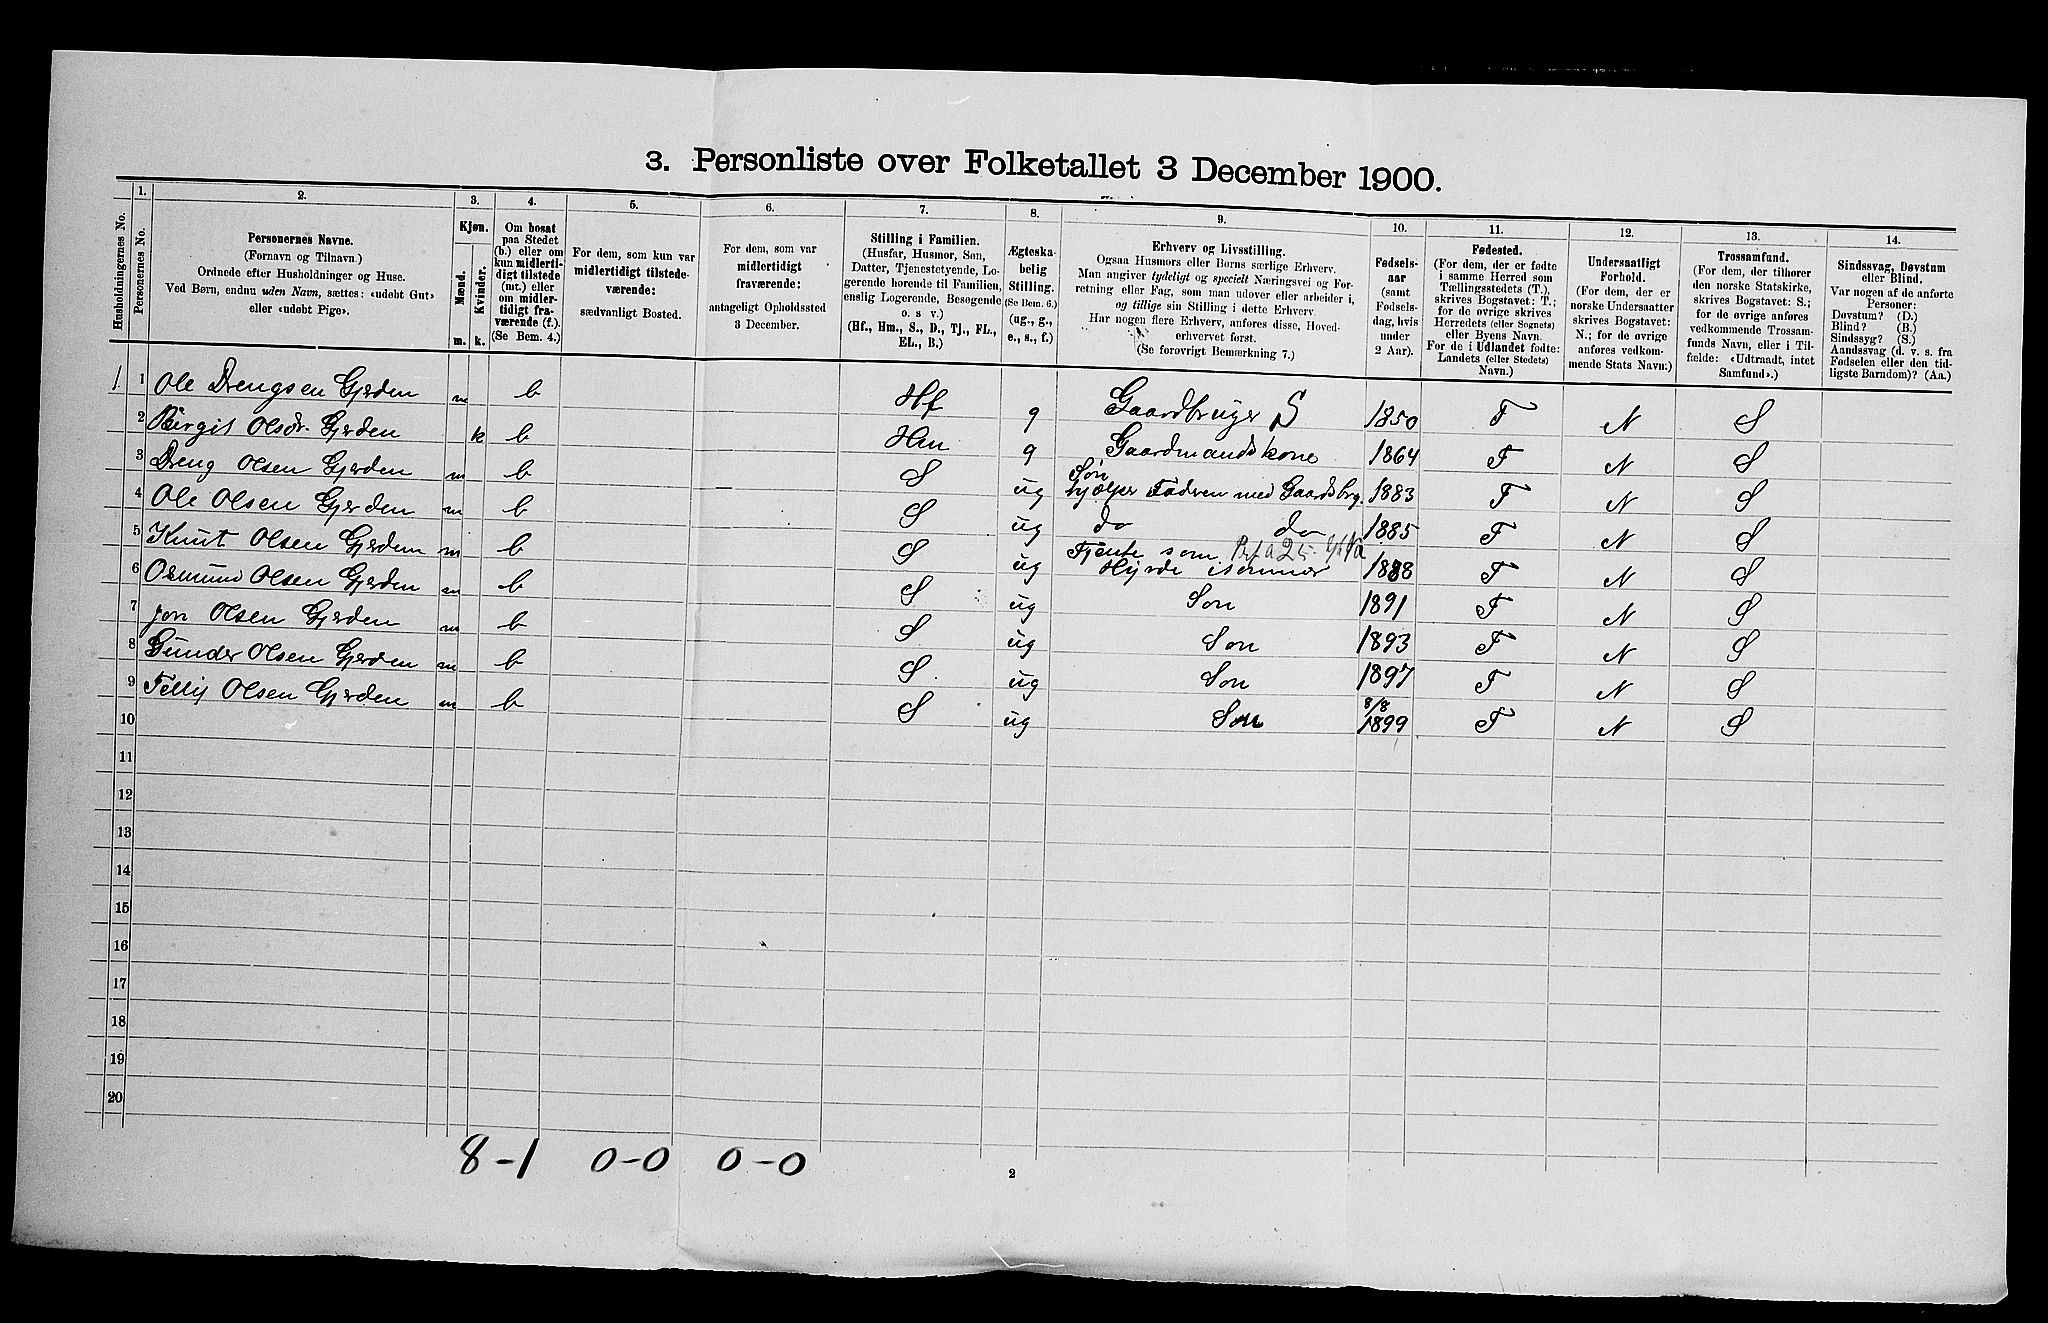 3. Personliste over Folketallet 3 December 1900.
Husholdningernes No.
1. Personernes No.
2. Personernes Navne.
(Fornavn og Tilnavn.)
Ordnede efter Husholdninger og Huse.
Ved Børn, endnu uden Navn, sættes: «udøbt Gut»
eller «udøbt Pige».
3. Kjøn.
Mænd.
Kvinder.
m. k.
4. Om bosat
paa Stedet
(b.) eller om
kun midlerti-
digt tilstede
(mt.) eller
om midler-
tidigt fra-
værende (f.).
(Se Bem. 4.)
5. For dem, som kun var
midlertidigt tilstede-
værende:
sædvanligt Bosted.
6. For dem, som var
midlertidigt
fraværende:
antageligt Opholdssted
3 December.
7. Stilling i Familien.
(Husfar, Husmor, Søn,
Datter, Tjenestetyende, Lo-
gerende hørende til Familien,
enslig Logerende, Besøgende
o. s v.)
(Hf., Hm., S., D., Tj., FL.,
EL., B.)
8. Ægteska-
belig
Stilling.
(Se Bem. 6.)
(ug., g.,
e., s., f.)
9. Erhverv og Livsstilling.
Ogsaa Husmors eller Børns særlige Erhverv.
Man angiver tydeligt og specielt Næringsvei og For-
retning eller Fag, som man udover eller arbeider i,
og tillige sin Stilling i dette Erhverv.
Har nogen flere Erhverv, anføres disse, Hoved-
erhvervet først.
(Se forøvrigt Bemærkning 7.)
10. Fødsels-
aar
(samt
Fødsels-
dag, hvis
under
2 Aar).
11. Fødested.
(For dem, der er fødte
i samme Herred som
Tællingsstedets (T.),
skrives Bogstavet: T.;
for de øvrige skrives
Herredets (eller Sognets)
eller Byens Navn.
For de i Udlandet fødte:
Landets (eller Stedets)
Navn.)
12. Undersaatligt
Forhold.
(For dem, der er
norske Undersaatter
skrives Bogstavet:
N.; for de øvrige
anføres vedkom-
mende Stats Navn.)
13. Trossamfund.
(For dem, der tilhører
den norske Statskirke,
skrives Bogstavet: S.;
for de øvrige anføres
vedkommende Trossam-
funds Navn, eller i Til-
fælde: «Udtraadt, intet
Samfund».)
14. Sindssvag, Døvstum
eller Blind.
Var nogen af de anførte
Personer:
Døvstum? (D.)
Blind? (B.)
Sindssyg? (S.)
Aandssvag (d. v. s. fra
Fødselen eller den tid-
ligste Barndom)? (Aa.)
1 1 Ole Drengsen Gjerden m b Hf g Gaardbruger S 1850 T N S
2 Birgit Olsdr. Gjerden k b Hm g Gaardmandskone 1864 T N S
3 Dreng Olsen Gjerden m b S ug Søn hjælper Fadren med Gaardsbrg. 1883 T N S
4 Ole Olsen Gjerden m b S ug do do 1885 T N S
5 Knut Olsen Gjerden m b S ug Tjente som Hyrde isommer 1888 T N S
6 Osmund Olsen Gjerden m b S ug Søn 1891 T N S
7 Jon Olsen Gjerden m b S ug Søn 1893 T N S
8 Gunder Olsen Gjerden m b S ug Søn 1897 T N S
9 Olsen Gjerden m b S ug Søn 8/8 1899 T N S
10
11
12
13
14
15
16
17
18
19
20
8-1 0-0 0-0
2